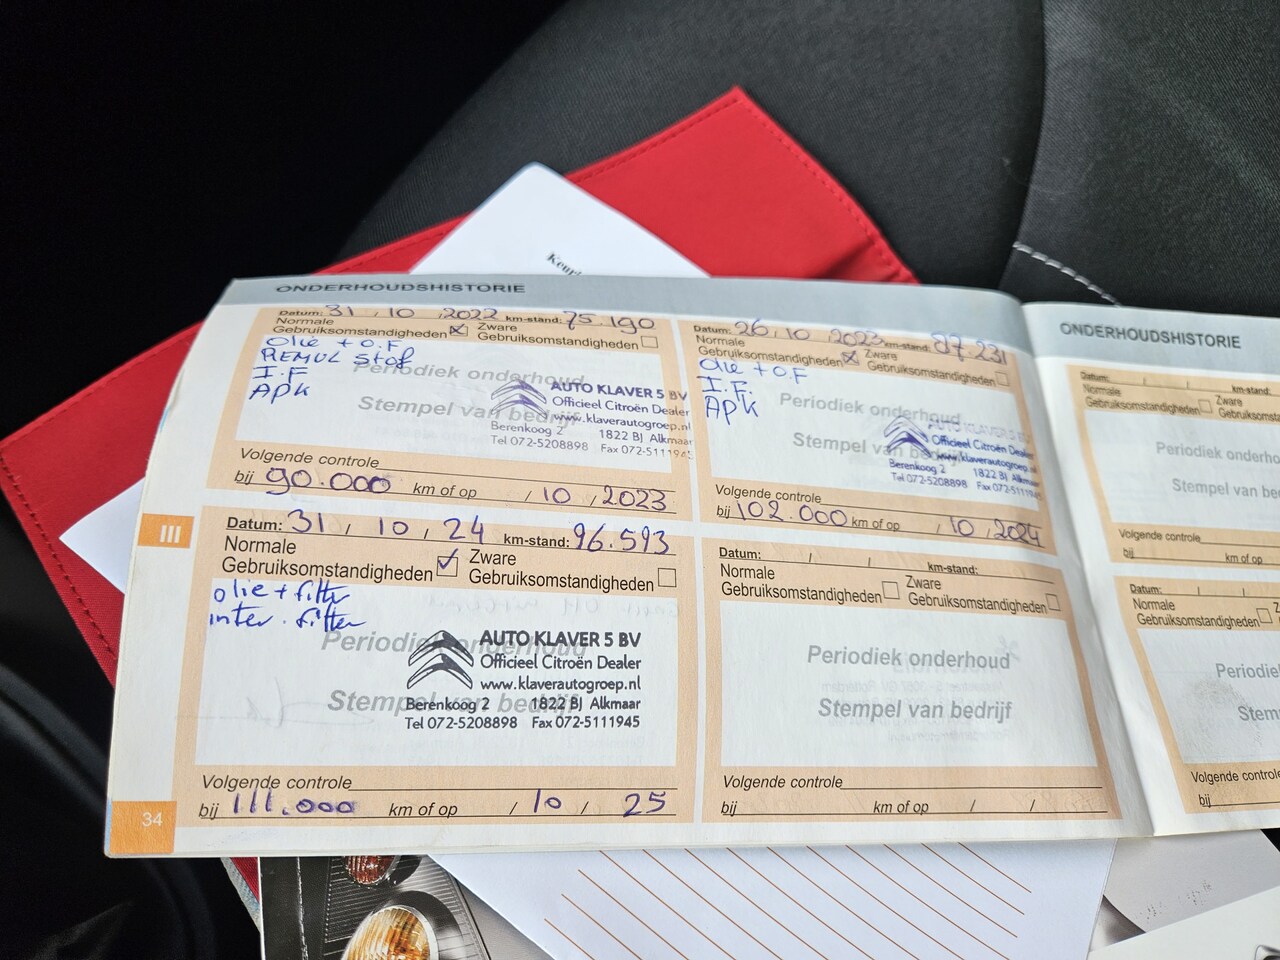 Keuri
ONDERHOUDSHISTORIE
Datum: 31 , 10 , 2022 km-stand: 75.190
Normale
Gebruiksomstandigheden
Zware
Gebruiksomstandigheden
Olie + O.F
REMVL Stof
I.F
APK
Periodiek onderhoud
Stempel van bedrijf
AUTO KLAVER 5 BV
Officieel Citroën Dealer
www.klaverautogroep.nl
Berenkoog 2 1822 BJ Alkmaar
Tel 072-5208898 Fax 072-5111945
Volgende controle
bij 90.000 km of op / 10 , 2023
Datum: 26, 10 , 2023 km-stand: 87.231
Normale
Gebruiksomstandigheden
Zware
Gebruiksomstandigheden
Olie + O.F
I.F.
APK
Periodiek onderhoud
Stempel van bedrijf
AUTO KLAVER 5 BV
Officieel Citroën Dealer
www.klaverautogroep.nl
Berenkoog 2 1822 BJ Alkmaar
Tel 072-5208898 Fax 072-5111945
Volgende controle
bij 102.000 km of op , 10 , 2024
III
Datum: 31 , 10 , 24 km-stand: 96.593
Normale
Gebruiksomstandigheden
Zware
Gebruiksomstandigheden
olie + filter
inter. filter
Periodiek onderhoud
Stempel van bedrijf
AUTO KLAVER 5 BV
Officieel Citroën Dealer
www.klaverautogroep.nl
Berenkoog 2 1822 BJ Alkmaar
Tel 072-5208898 Fax 072-5111945
Volgende controle
bij 111.000 km of op / 10 / 25
34
Datum: / / km-stand:
Normale
Gebruiksomstandigheden
Zware
Gebruiksomstandigheden
Periodiek onderhoud
Stempel van bedrijf
Volgende controle
bij km of op / /
ONDERHOUDSHISTORIE
Datum: / / km-stand:
Normale
Gebruiksomstandigheden
Zware
Gebruiksomsta
Periodiek onderho
Stempel van be
Volgende controle
bij km of op
Datum: / / km-stand:
Normale
Gebruiksomstandigheden
Periodiek
Stem
Volgende controle
bij km of